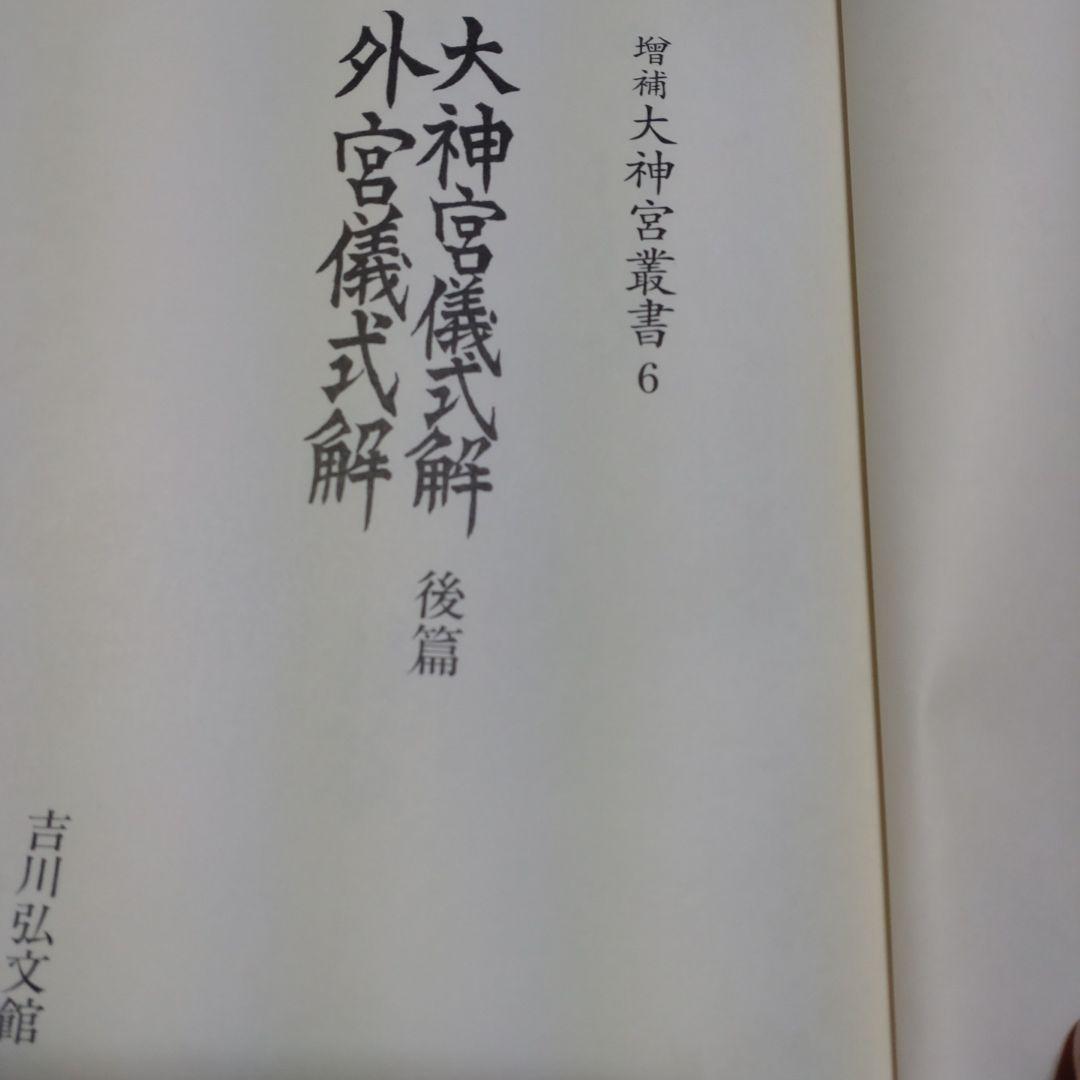 増補大神宮叢書6
大神宮儀式解 後篇
外宮儀式解
吉川弘文館